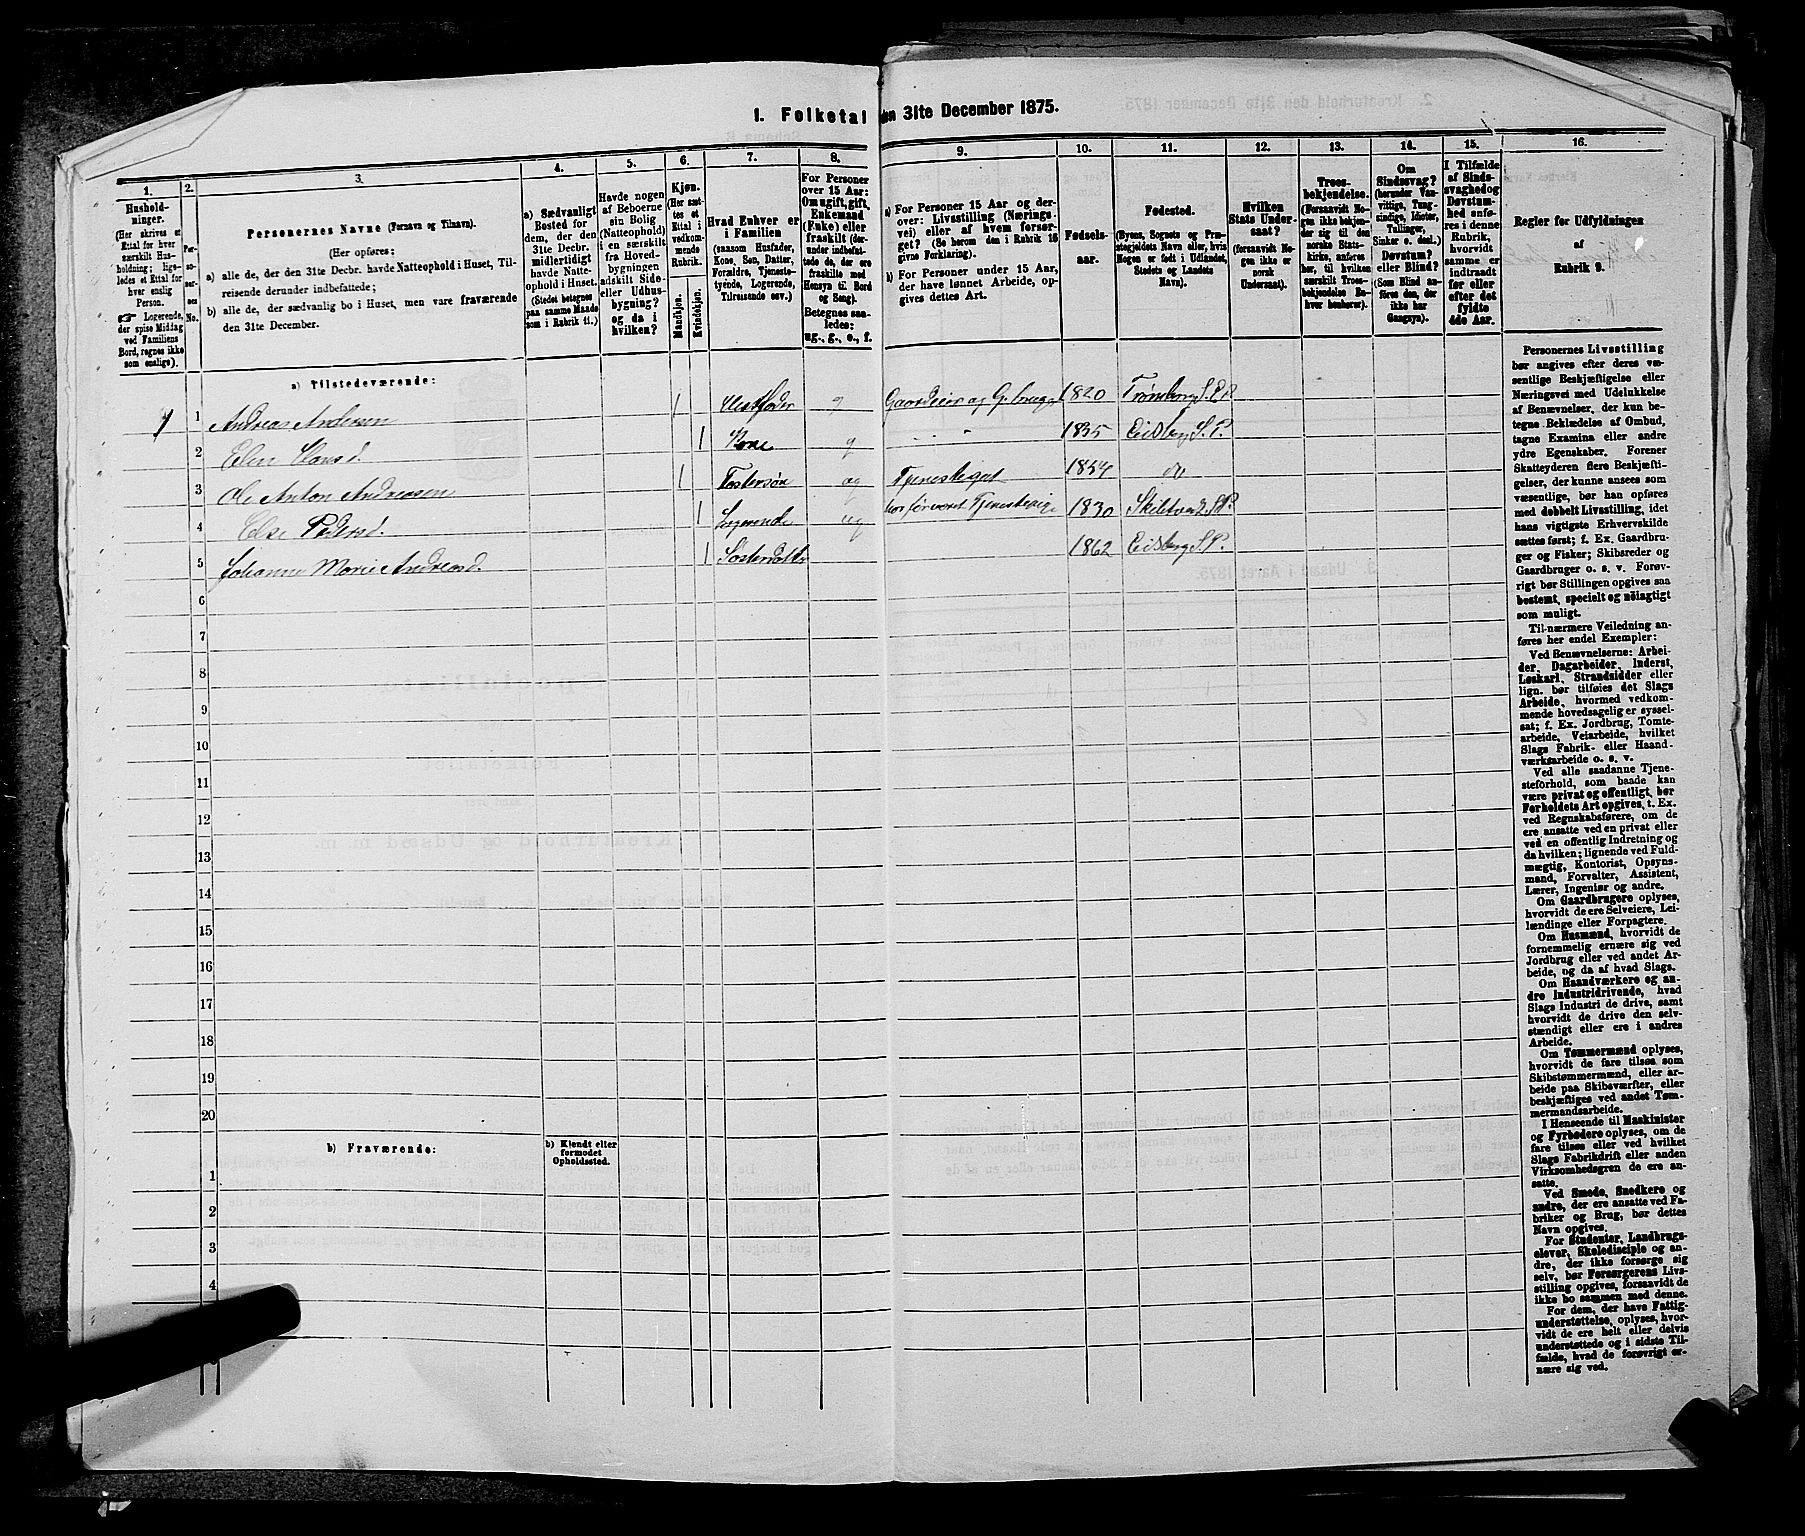 1. Folketal den 31te December 1875.
1. 2. 3. 4. 5. 6. 7. 8. 9. 10. 11. 12. 13. 14. 15. 16.
Hushold-
ninger.
(Her skrives et
Ettal for hver
særskilt Hus-
holdning; lige-
ledes et Ettal for
hver enslig
Person.
☞ Logerende,
der spise Middag
ved Familiens
Bord, regnes ikke
som enslige).
Per-
so-
ner-
nes
No.
Personernes Navne (Fornavn og Tilnavn).
(Her opføres:
a) alle de, der den 31te Decbr. havde Natteophold i Huset, Til-
reisende derunder indbefattede;
b) alle de, der sædvanlig bo i Huset, men vare fraværende
den 31te December.
a) Sædvanligt
Bosted for
dem, der den
31te Decbr.
midlertidigt
havde Natte-
ophold i Huset.
(Stedet betegnes
paa samme Maade
som i Rubrik 11.)
Havde nogen
af Beboerne
sin Bolig
(Natteophold)
i en særskilt
fra Hoved-
bygningen
adskilt Side-
eller Udhus-
bygning?
og da i
hvilken?
Kjøn.
(Her sæt-
tes et
Ettal i
vedkom-
mende
Rubrik.
Mandkjøn.
Kvindekjøn.
Hvad Enhver er
i Familien
(saasom Husfader,
Kone, Søn, Datter,
Forældre, Tjeneste-
tyende, Logerende,
Tilreisende osv.)
For Personer
over 15 Aar:
Om ugift, gift,
Enkemand
(Enke) eller
fraskilt (der-
under indbefat-
tede de, der ere
fraskilte med
Hensyn til Bord
og Seng).
Betegnes saa-
ledes:
ug., g., e., f.
a) For Personer 15 Aar og der-
over: Livsstilling (Nærings-
vei) eller af hvem forsør-
get? (Se herom den i Rubrik 16
givne Forklaring).
b) For Personer under 15 Aar,
der have lønnet Arbeide, op-
gives dettes Art.
Fødsels-
aar.
Fødested.
(Byens, Sognets og Præ-
stegjeldets Navn eller, hvis
Nogen er født i Udlandet,
Stedets og Landets
Navn).
Hvilken
Stats Under-
saat?
(forsaavidt No-
gen ikke er
norsk
Undersaat).
Troes-
bekjendelse.
(Forsaavidt No-
gen ikke bekjen-
der sig til den
norske Stats-
kirke, anføres
her, til hvilken
særskilt Troes-
bekjendelse En-
hver henhører).
Om
Sindssvag?
(herunder Van-
vittige, Tung-
sindige, Idioter,
Tullinger,
Sinker o. desl.)
Døvstum?
eller Blind?
(Som Blind an-
føres den, der
ikke har
Gangsyn).
I Tilfælde
af Sinds-
svaghed og
Døvstum-
hed anfø-
res i denne
Rubrik,
hvorvidt
samme er
indtraadt
før eller
efter det
fyldte
4de Aar.
Regler for Udfyldningen
af
Rubrik 9.
a) Tilstedeværende:
1 1 Andreas Andersen 1 Husfader g Gaardeier og G.brug 1820 Trømborg S. E. P.
2 Elen Clausd. 1 Kone g 1835 Eidsberg S. P.
3 Ole Anton Andreasen 1 Fostersøn ug Tjenestegut 1854 do
4 Else Pedersd. 1 Logerende ug 1830 S. P.
5 Johanne Marie Andreasd. 1 1862 Eidsberg S. P.
6
7
8
9
10
11
12
13
14
15
16
17
18
19
20
b) Fraværende:
b) Kjendt eller
formodet
Opholdssted.
1
2
3
4
Personernes Livsstilling
bør angives efter deres væ-
sentlige Beskjæftigelse eller
Næringsvei med Udelukkelse
af Benævnelser, der kun be-
tegne Beklædelse af Ombud,
tagne Examina eller andre
ydre Egenskaber. Forener
Skatteyderen flere Beskjæfti-
gelser, der kunne ansees som
væsentlige, bør han opføres
med dobbelt Livsstilling, idet
hans vigtigste Erhvervskilde
sættes først; f. Ex. Gaardbru-
ger og Fisker; Skibsreder og
Gaardbruger o. s. v. Forøv-
rigt bør Stillingen opgives saa
bestemt, specielt og nøiagtigt
som muligt.
Til nærmere Veiledning an-
føres her endel Exempler:
Ved Benævnelserne: Arbei-
der, Dagarbeider, Inderst,
Løskarl, Strandsidder eller
lign. bør tilføies det Slags
Arbeide, hvormed vedkom-
mende hovedsagelig er syssel-
sat; f. Ex. Jordbrug, Tomte-
arbeide, Veiarbeide, hvilket
Slags Fabrik- eller Haand-
værksarbeide o. s. v.
Ved alle saadanne Tjene-
steforhold, som baade kan
være privat og offentligt, bør
Forholdets Art opgives, t. Ex.
ved Regnskabsførere, om de
ere ansatte ved en privat eller
ved en offentlig Indretning og
da hvilken; lignende ved Fuld-
mægtig, Kontorist, Opsyns-
mand, Forvalter, Assistent,
Lærer, Ingeniør og andre.
Om Gaardbrugere oplyses,
hvorvidt de ere Selveiere, Lei-
lændinge eller Forpagtere.
Om Husmænd, hvorvidt de
fornemmelig ernære sig ved
Jordbrug eller ved andet Ar-
beide, og da af hvad Slags.
Om Haandværkere og an-
dre Industridrivende, hvad
Slags Industri de drive, samt
hvorvidt de drive den selv-
stændigt eller ere i andres
Arbeide.
Om Tømmermænd oplyses,
hvorvidt de fare tilsøs som
Skibstømmermænd, eller ar-
beide paa Skibsværfter, eller
beskjæftiges ved andet Tøm-
mermandsarbeide.
I Henseende til Maskinister
og Fyrbødere oplyses, om de
fare tilsøs eller ved hvilket
Slags Fabrikdrift eller anden
Virksomhedsgren de ere an-
satte.
Ved Smede, Snedkere og
andre, der ere ansatte ved Fa-
briker og Brug, bør dettes
Navn opgives.
For Studenter, Landbrugs-
elever, Skoledisciple og an-
dre, der ikke forsørge sig
selv, bør Forsørgerens Livs-
stilling opgives, forsaavidt de
ikke bo sammen med denne.
For dem, der have Fattig-
understøttelse, oplyses, hvor-
vidt de ere helt eller delvis
understøttede og i sidste Til-
fælde, hvad de forøvrigt er-
nære sig ved.